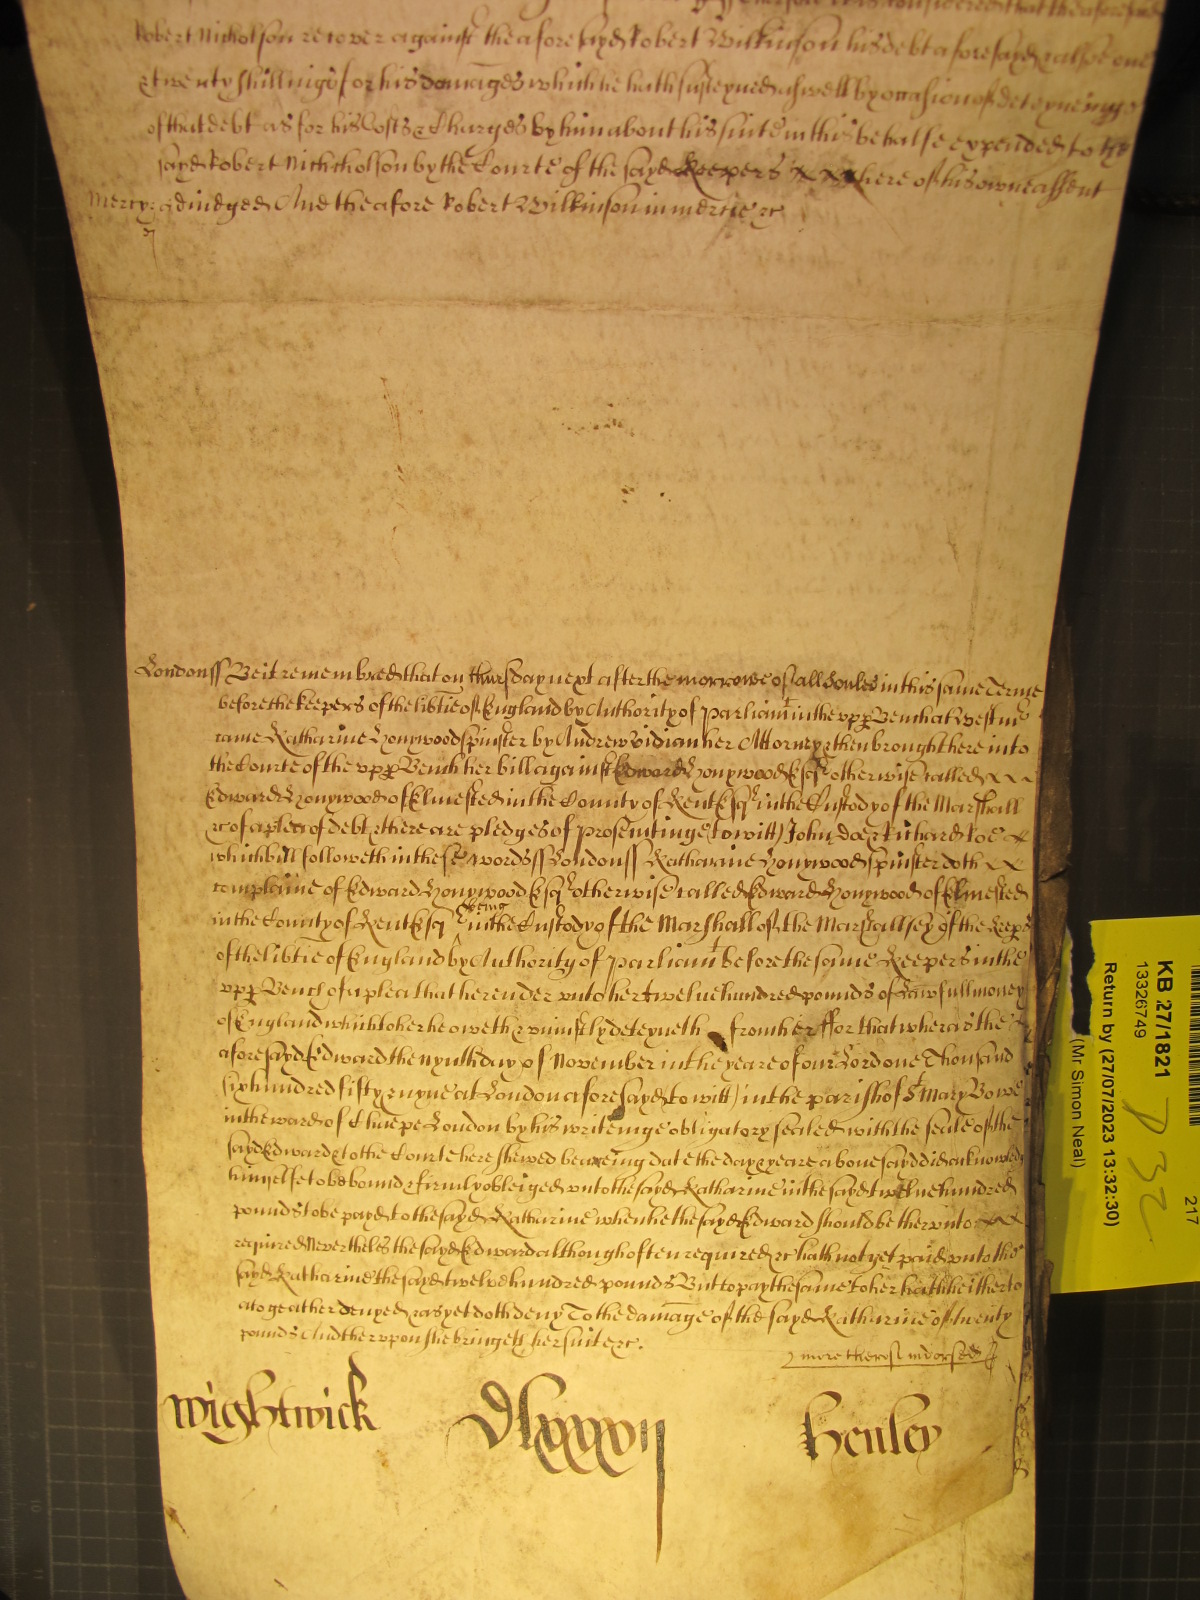 it is considered that the aforesayd
Robert Nicholson recover against the aforesayd Robert Wilkinson his debt aforesayd & alsoe one
& twenty shillings for his damages which he hath susteyned aswell by occasion of deteyneinge
of that debt as for his Costs & Charges by him about his suite in this behalfe expended to the
sayd Robert Nichcholson by the Courte of the sayd Keepers here of his owne assent
Mercy: adiudged And the afore Robert Wilkinson in mercie &c
London ss Be it remembred that on thursday next after the morrowe of all Soules in this same Terme
before the keepers of the lib̃tie of England by Authority of Parliamt in the upp Bench at Westmr
came Katharine Honywood spinster by Andrew Vidian her Attorney & then brought here into
the Courte of the upp Bench her bill against Edward Honywood Esqr otherwise called
Edward Honywood of Elmested in the County of Kent Esqr in the Custody of the Marshall
&c of a plea of debt & there are pledges of prosecutinge (to witt) John Doe & Richard Roe
which bill followeth in these words ss London ss Katharine Honywood spinster doth
complaine of Edward Honywood Esqr otherwise called Edward Honywood of Elmested
in the County of Kent Esq being in the Custody of the Marshall of the Marshallsey of the Keeprs
of the lib̃tie of England by Authority of Parliamt before the same Keepers in the
upp Bench of a plea that he render unto her twelve hundred pounds of Lawfull money
of England which to her he oweth & uniustly deteyneth from her ffor that wheras the
aforesayd Edward the nynth day of November in the yeare of our Lord one Thousand
six hundred fifty & nyne at London aforesayd (to witt) in the parish of St Mary Bowe
in the ward of Cheepe London by his writeinge obligatory sealed with the seale of the
sayd Edward & to the Courte here shewed beareing date the day & yeare abovesayd did acknowledg
himselfe to be bound & firmly obleiged unto the sayd Katharine in the sayd twelve hundred
pounds to be payd to the sayd Katharine when he the sayd Edward should be therunto
required Nevertheles the sayd Edward although often required &c hath not yet paid unto the
sayd Katharine the sayd twelve hundred pounds But to pay the same to her hath hitherto
altogeather denyed & as yet doth deny To the damage of the sayd Katharine of twenty
pounds And therupon she bringeth her suite &c.
more therof indorsed
Wightwick Dlxxxvij Henley
KB 27/1821
13326749
Return by (27/07/2023 13:32:30)
(Mr Simon Neal)
217